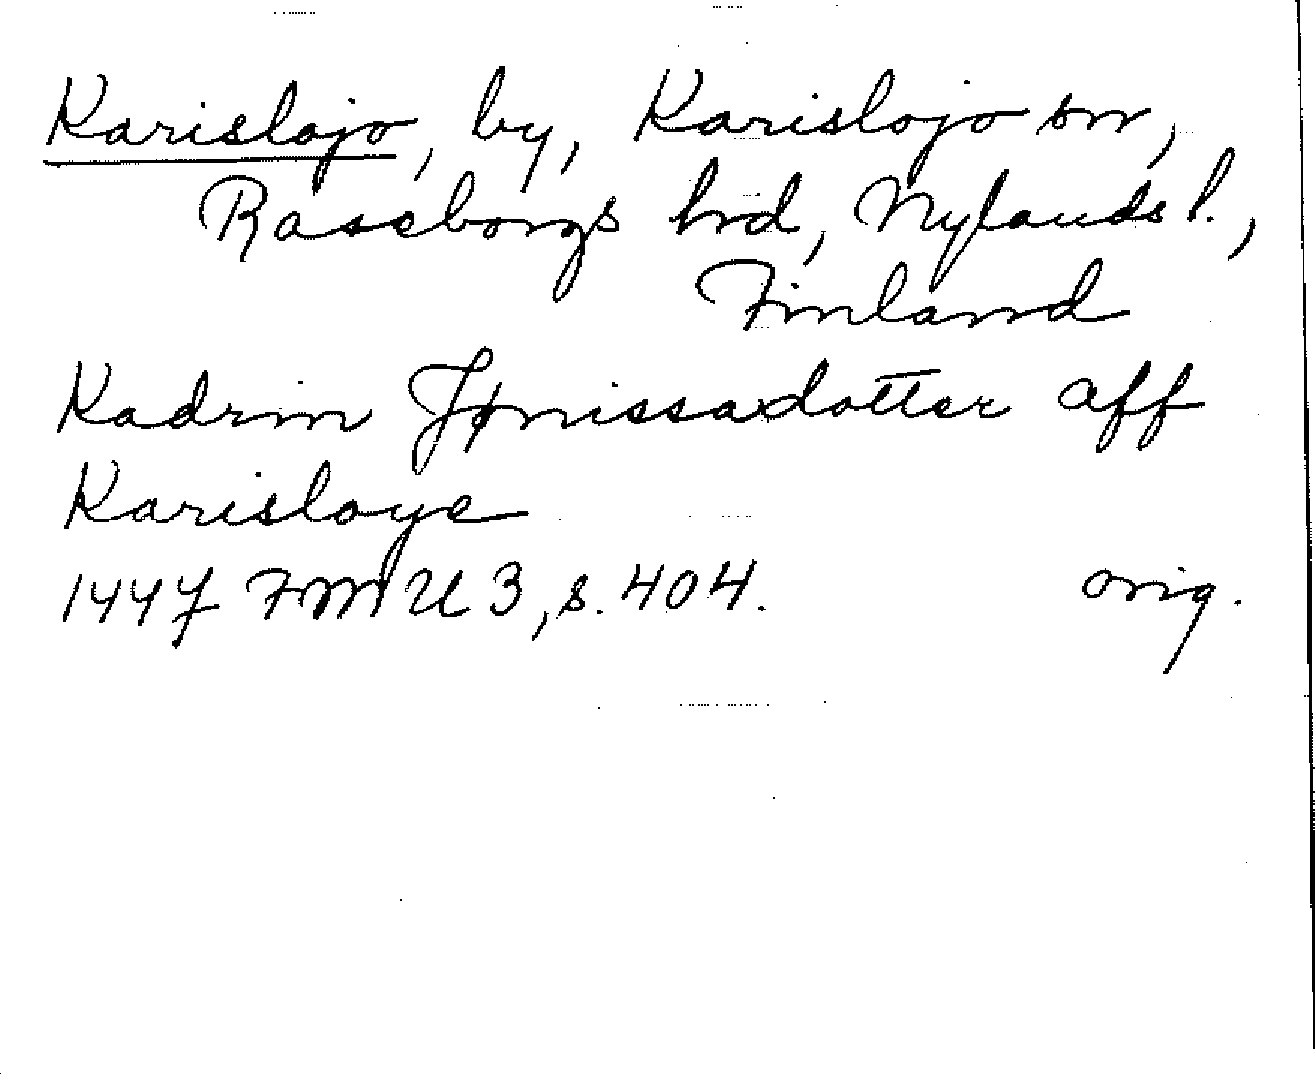 Karislojo, by, Karislojo sn,
Raseborgs hrd, Nylands l.,
Finland
Kadrin Jønissadotter aff
Karisloye
1447 FMU 3, s. 404. orig.